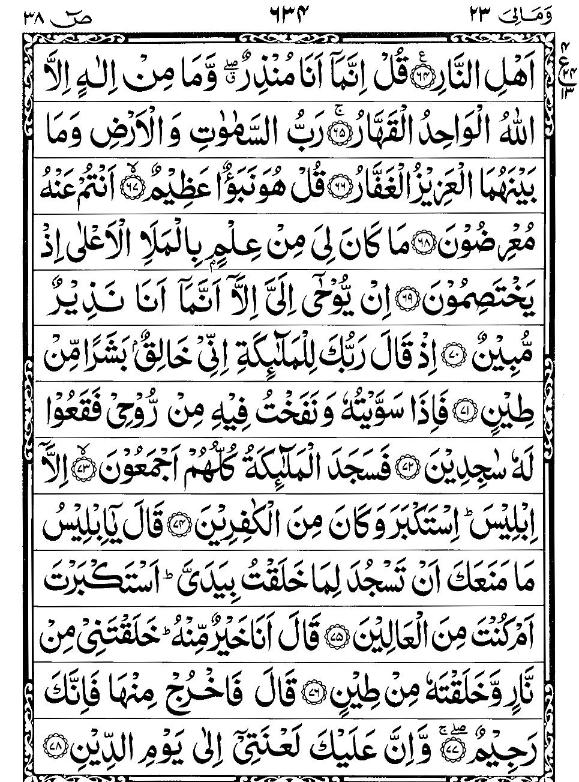 وَمَالِیَ ۲۳ ٦٣٤ صٓ ۳۸
اَهْلِ النَّارِ ﴿٦٤﴾ قُلْ اِنَّمَاۤ اَنَا مُنْذِرٌ ۖۗ وَّمَا مِنْ اِلٰهٍ اِلَّا
اللّٰهُ الْوَاحِدُ الْقَهَّارُ ﴿٦٥﴾ۚ رَبُّ السَّمٰوٰتِ وَالْاَرْضِ وَمَا
بَیْنَهُمَا الْعَزِیْزُ الْغَفَّارُ ﴿٦٦﴾ قُلْ هُوَ نَبَؤٌا عَظِیْمٌ ﴿٦٧﴾ۙ اَنْتُمْ عَنْهُ
مُعْرِضُوْنَ ﴿٦٨﴾ مَا كَانَ لِیَ مِنْ عِلْمٍۭ بِالْمَلَاِ الْاَعْلٰۤی اِذْ
یَخْتَصِمُوْنَ ﴿٦٩﴾ اِنْ یُّوْحٰۤی اِلَیَّ اِلَّاۤ اَنَّمَاۤ اَنَا نَذِیْرٌ
مُّبِیْنٌ ﴿٧٠﴾ اِذْ قَالَ رَبُّكَ لِلْمَلٰٓئِكَةِ اِنِّیْ خَالِقٌۢ بَشَرًا مِّنْ
طِیْنٍ ﴿٧١﴾ فَاِذَا سَوَّیْتُهٗ وَنَفَخْتُ فِیْهِ مِنْ رُّوْحِیْ فَقَعُوْا
لَهٗ سٰجِدِیْنَ ﴿٧٢﴾ فَسَجَدَ الْمَلٰٓئِكَةُ كُلُّهُمْ اَجْمَعُوْنَ ﴿٧٣﴾ۙ اِلَّاۤ
اِبْلِیْسَ ؕ اِسْتَكْبَرَ وَكَانَ مِنَ الْكٰفِرِیْنَ ﴿٧٤﴾ قَالَ یٰۤاِبْلِیْسُ
مَا مَنَعَكَ اَنْ تَسْجُدَ لِمَا خَلَقْتُ بِیَدَیَّ ؕ اَسْتَكْبَرْتَ
اَمْ كُنْتَ مِنَ الْعَالِیْنَ ﴿٧٥﴾ قَالَ اَنَا خَیْرٌ مِّنْهُ ؕ خَلَقْتَنِیْ مِنْ
نَّارٍ وَّخَلَقْتَهٗ مِنْ طِیْنٍ ﴿٧٦﴾ قَالَ فَاخْرُجْ مِنْهَا فَاِنَّكَ
رَجِیْمٌ ﴿٧٧﴾ۖۚ وَّاِنَّ عَلَیْكَ لَعْنَتِیْۤ اِلٰی یَوْمِ الدِّیْنِ ﴿٧٨﴾
٤
ع
٢٤
١٣